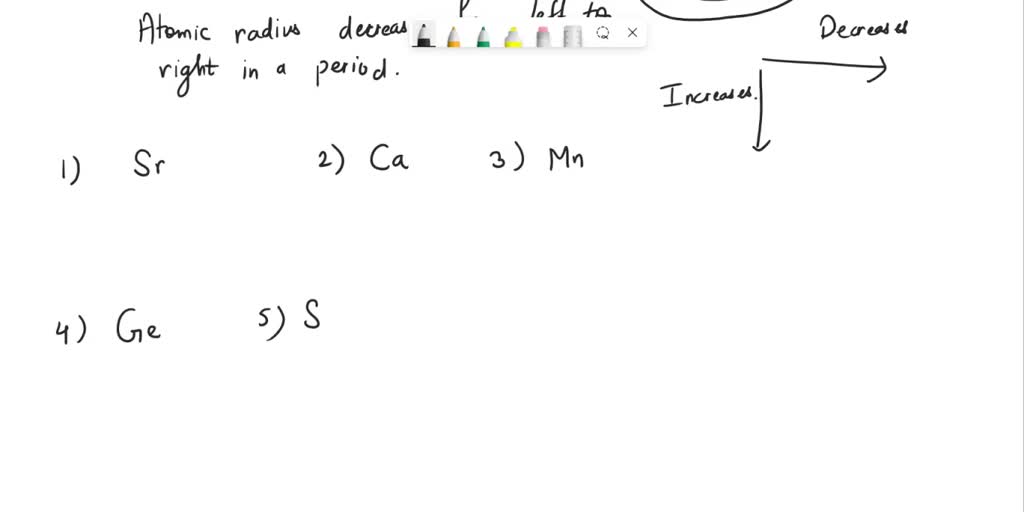 left to
Atomic radius decreas
right in a period.
Decreases
Increases.
1) Sr 2) Ca 3) Mn
4) Ge 5) S